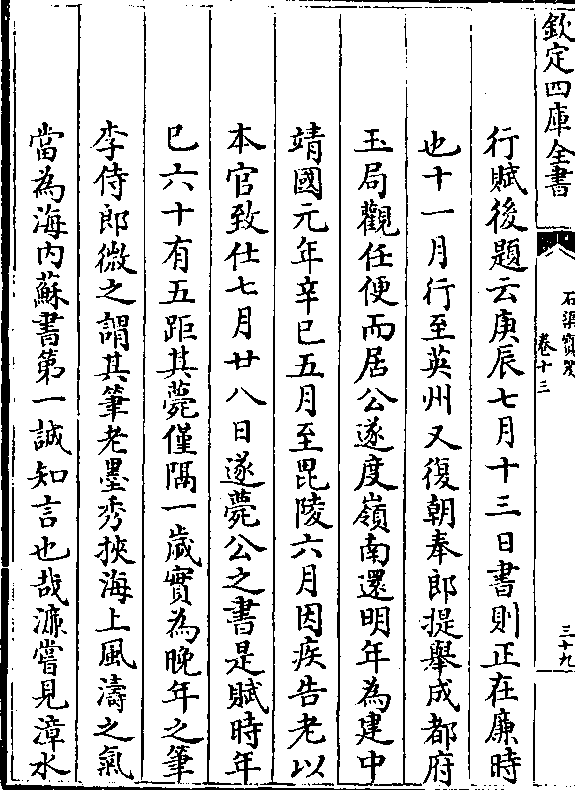 欽定四庫全書
石渠寶笈
卷十三
三十九
行賦後題云庚辰七月十三日書則正在廉時
也十一月行至英州又復朝奉郎提舉成都府
玉局觀任便而居公遂度嶺南還明年為建中
靖國元年辛巳五月至毘陵六月因疾告老以
本官致仕七月廿八日遂薨公之書是賦時年
巳六十有五距其薨僅隔一歲實為晚年之筆
李侍郎微之謂其筆老墨秀挾海上風濤之氣
當為海内蘇書第一誠知言也哉濂嘗見漳水